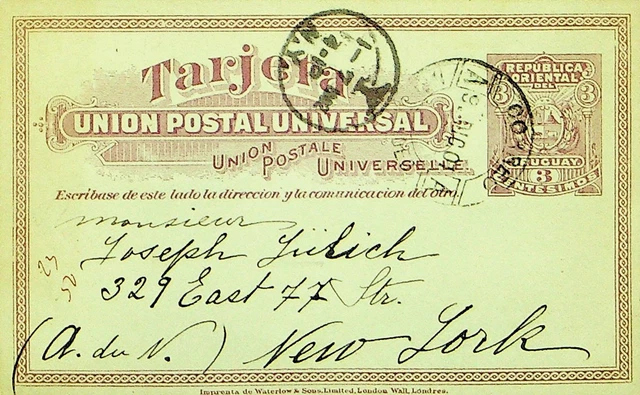 Tarjeta
UNION POSTAL UNIVERSAL
UNION POSTALE UNIVERSELLE
REPÚBLICA
ORIENTAL
DEL
3 3
URUGUAY
3
CENTESIMOS
Escríbase de este lado la direccion y la comunicacion del otro.
monsieur
Joseph Jülich
329 East 77 Str.
(A. du N.) New York
23
50
Imprenta de Waterlow & Sons, Limited, London Wall, Londres.